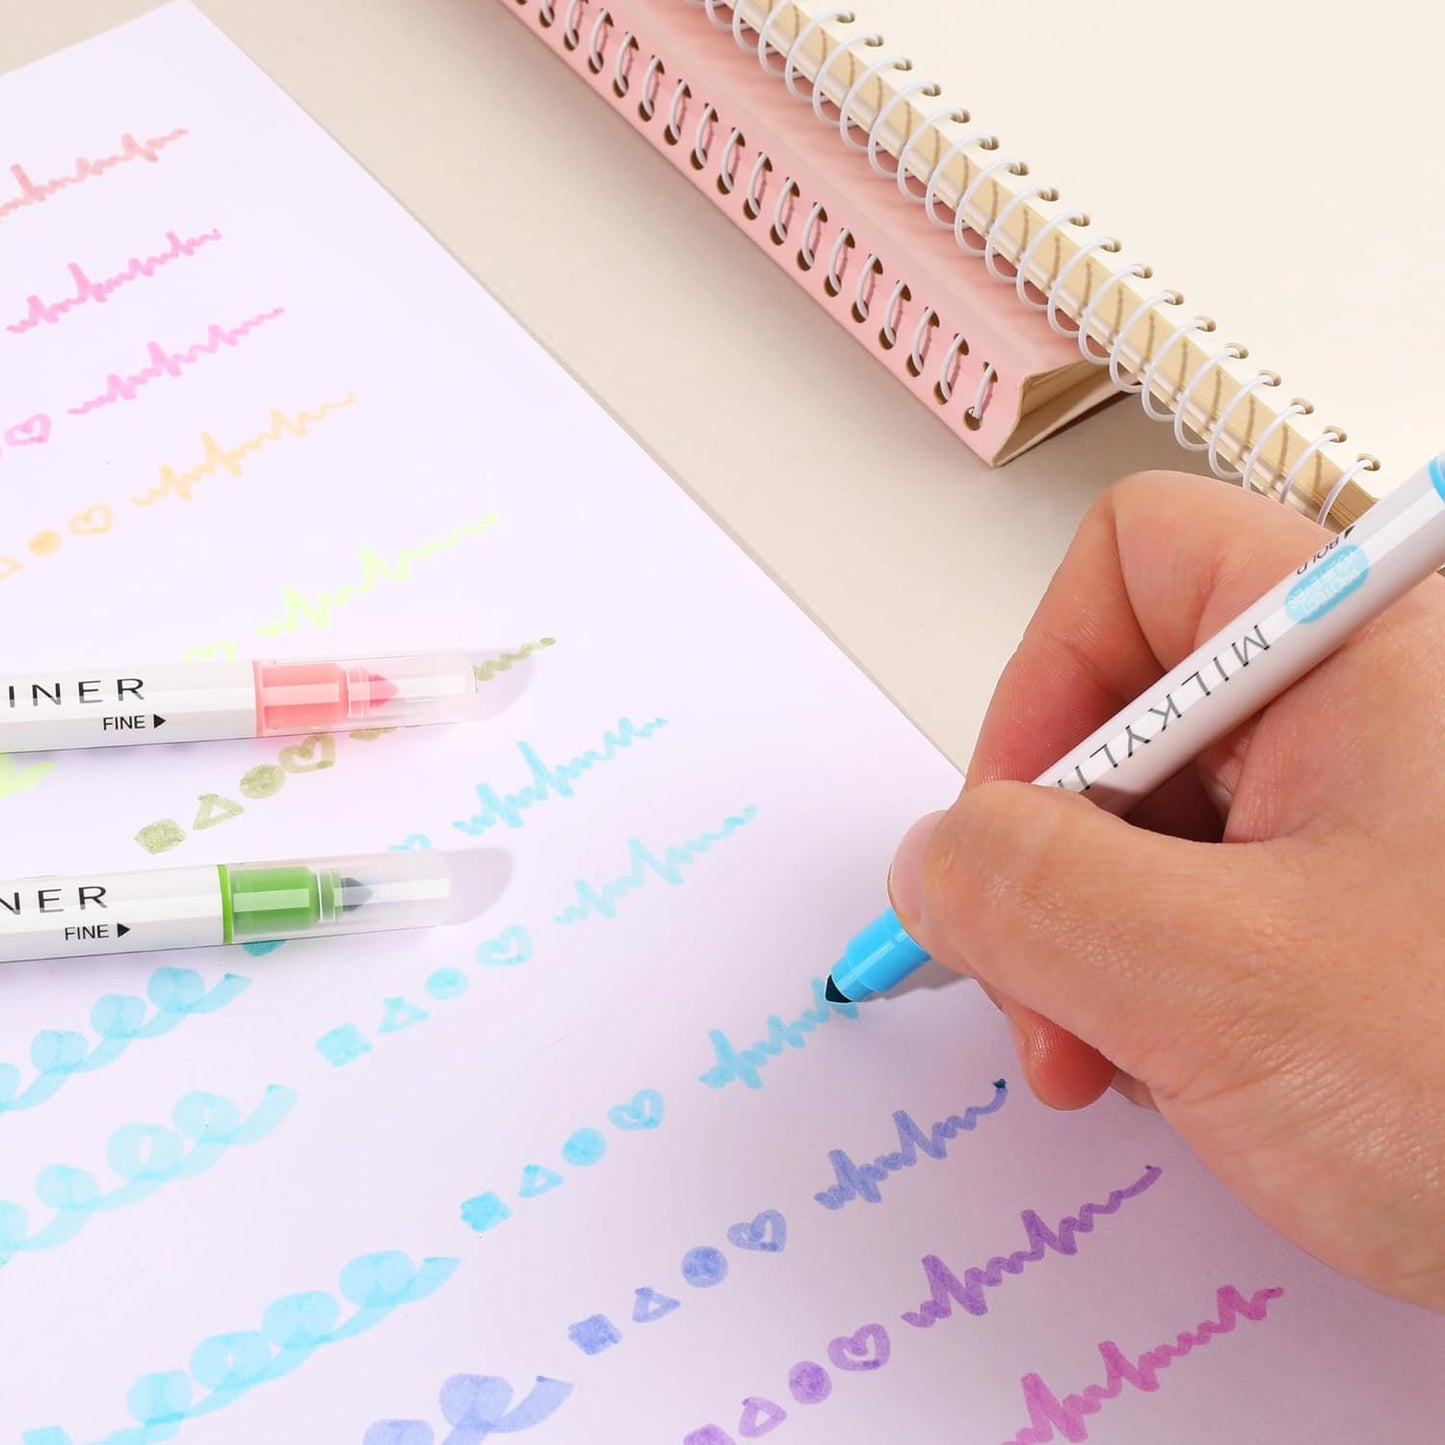 BOLD
MILKYLI
INER
FINE
NER
FINE